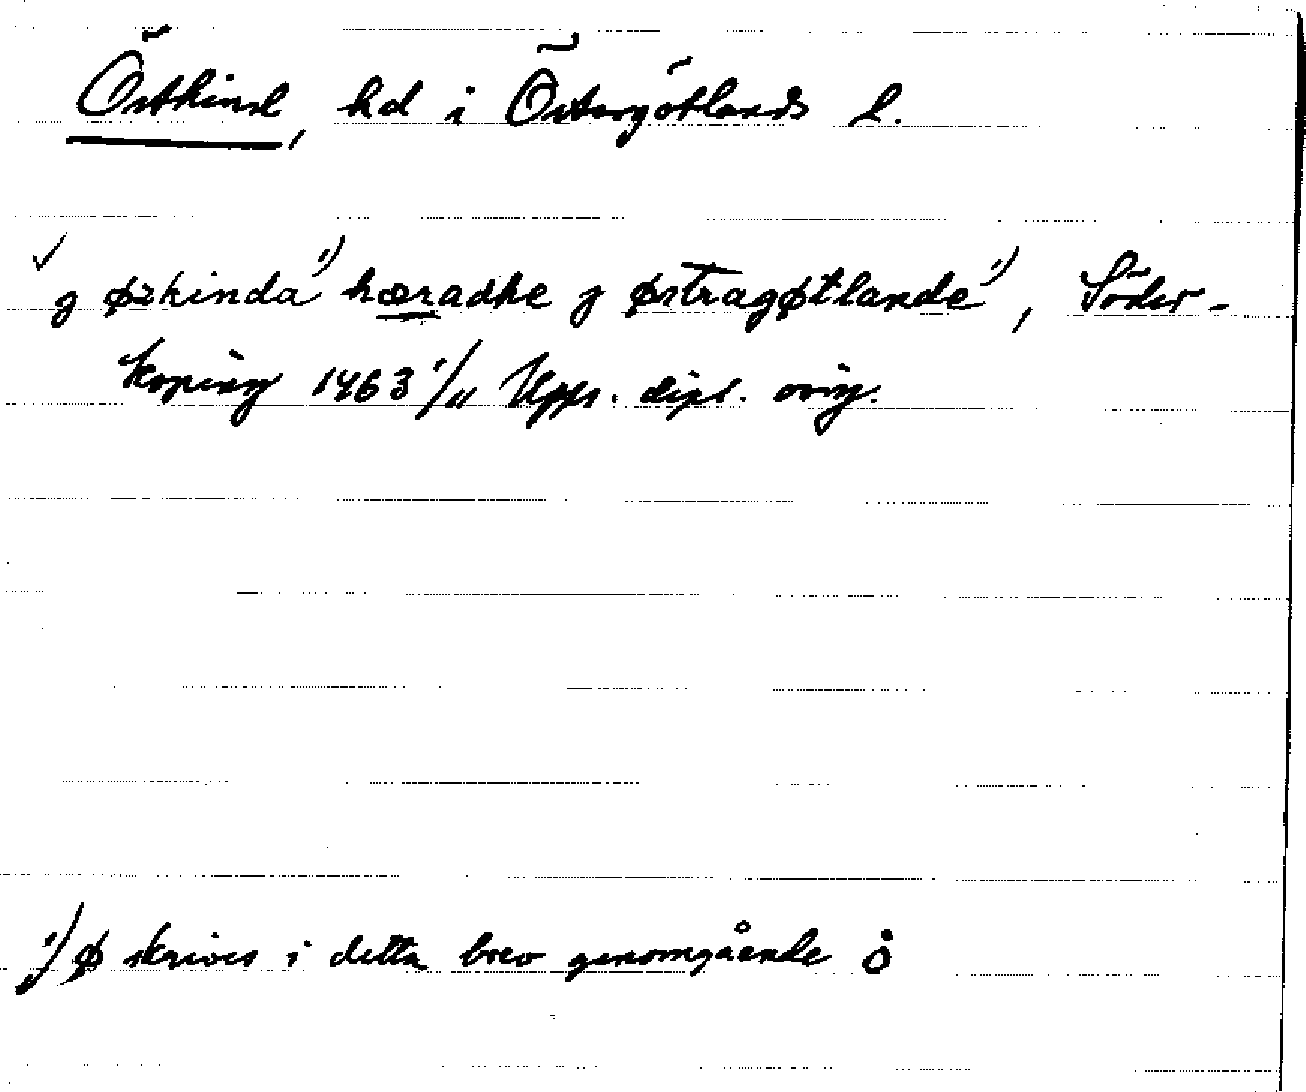 Östkind, hd i Östergötlands l.
g øzkinda¹⁾ hæradhe g østragøtlande¹⁾, Söder-
köping 1463 1/11 Upps. dipl. orig.
¹⁾ ø skrives i detta brev genomgående o̊